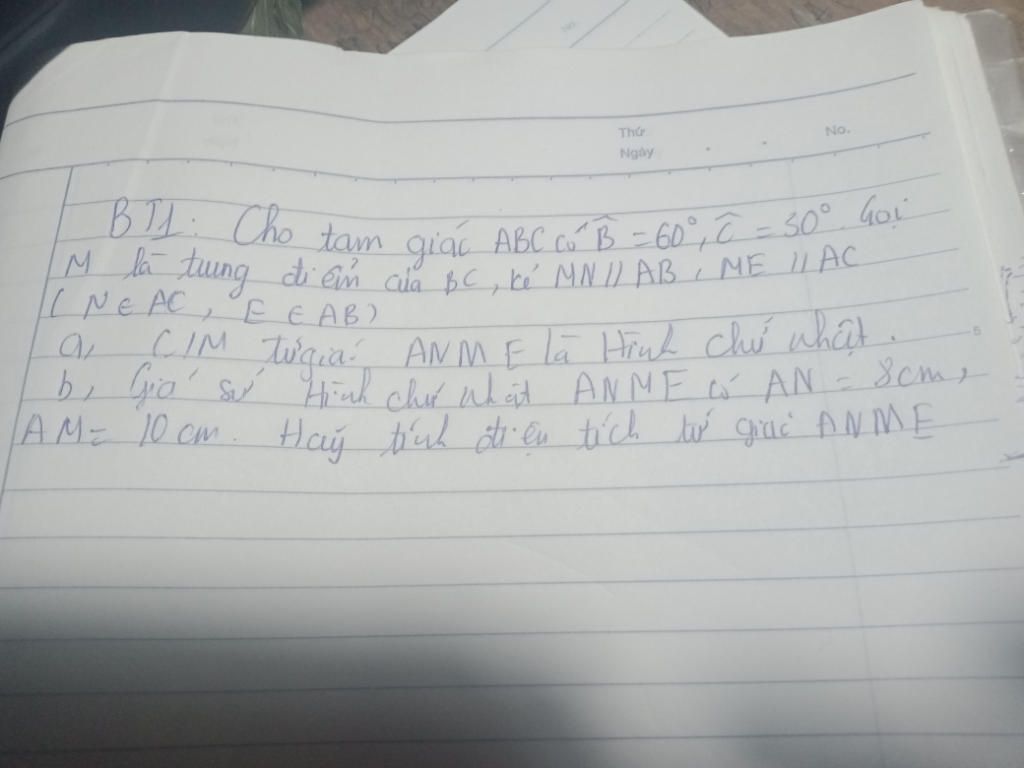 Thứ
Ngày
No.
BT1: Cho tam giác ABC có B̂ = 60°, Ĉ = 30°. Gọi
M là trung điểm của BC, kẻ MN // AB, ME // AC
(N ∈ AC, E ∈ AB)
a, C/M tứ giác ANME là Hình chữ nhật.
b, Giả sử Hình chữ nhật ANME có AN = 8cm,
AM = 10 cm. Hãy tính diện tích tứ giác ANME